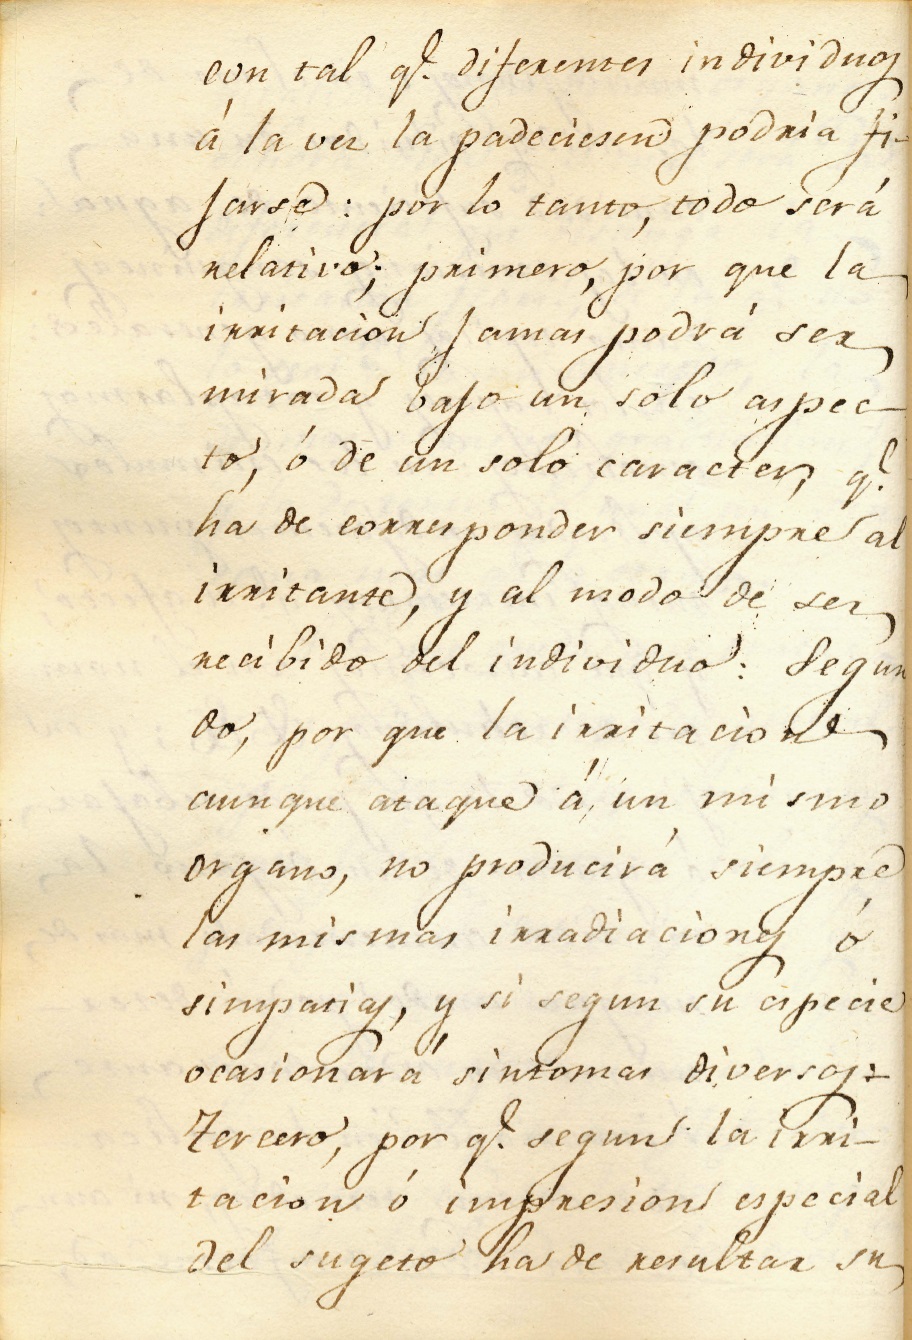 con tal q.ͤ diferentes individuos
á la vez la padeciesen podria fi-
jarse: por lo tanto, todo será
relativo; primero, por que la
irritacion jamas podrá ser
mirada bajo un solo aspec-
to, ó de un solo caracter, q.ͤ
ha de corresponder siempre al
irritante, y al modo de ser
recibido del individuo: Segun
do, por que la irritacion
aunque ataque á un mismo
organo, no producirá siempre
las mismas irradiaciones ó
simpatias, y si segun su especie
ocasionará sintomas diversos:
Tercero, por q.ͤ segun la irri-
tacion ó impresion especial
del sugeto ha de resultar su